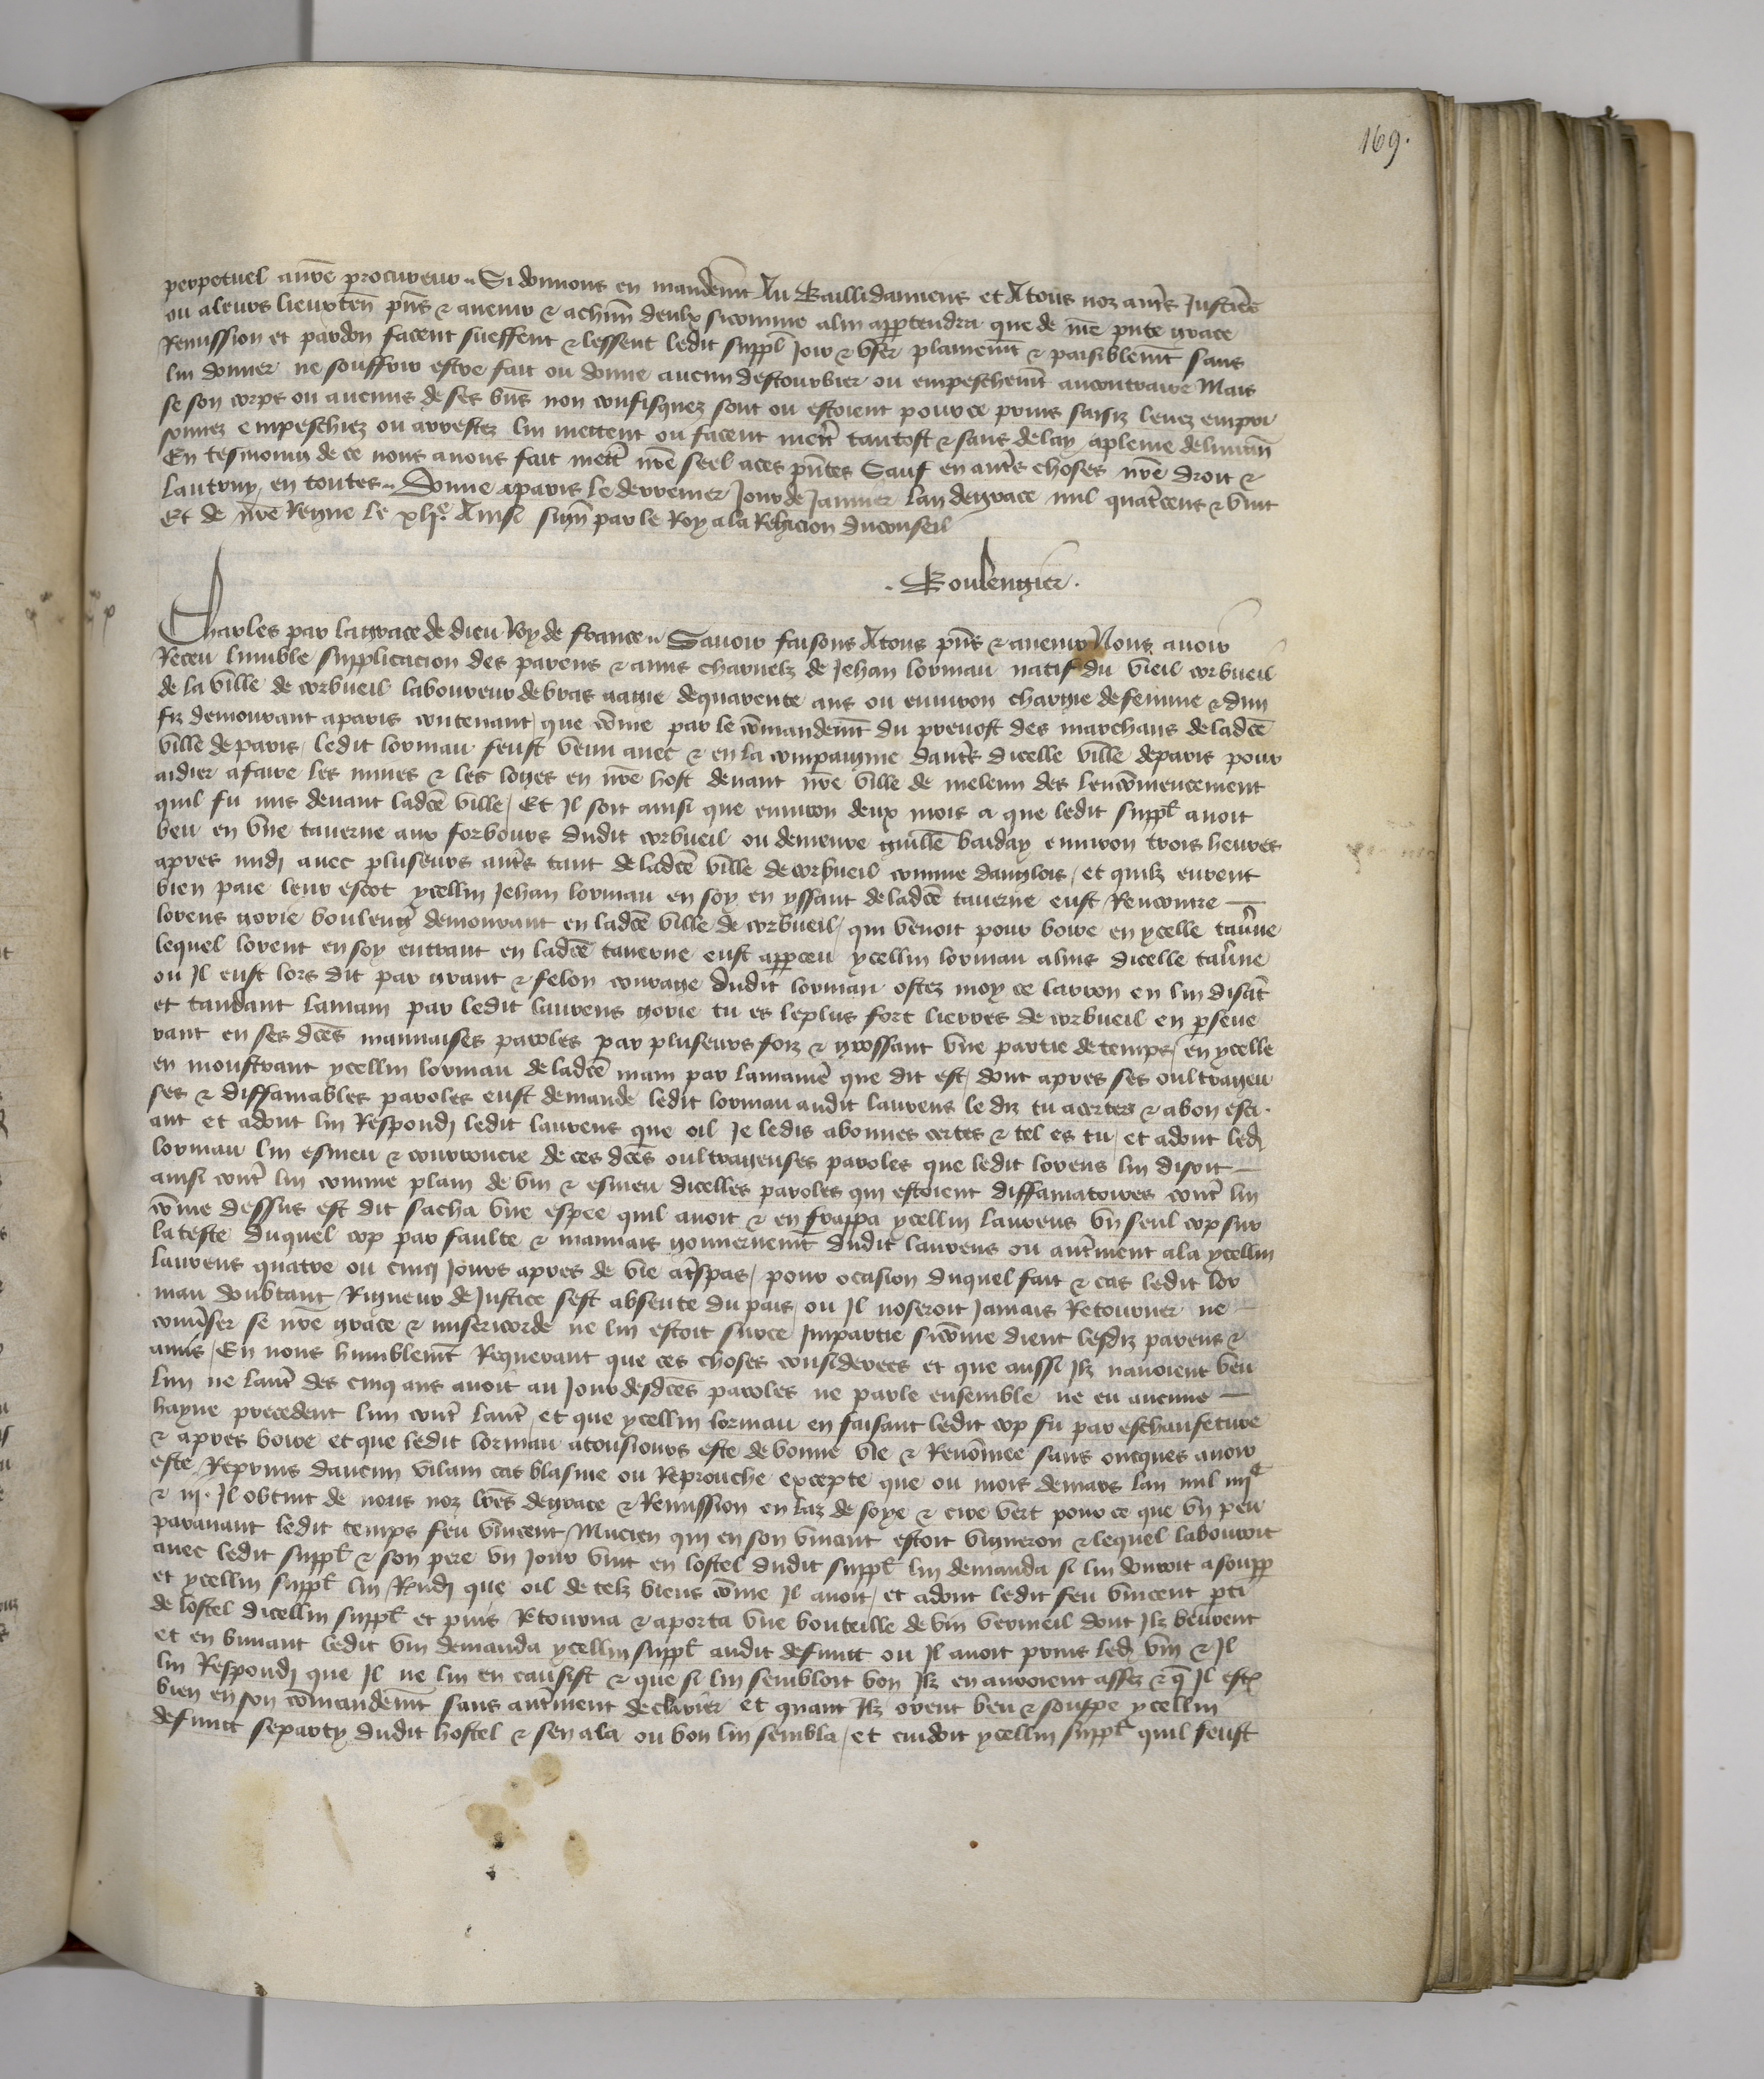 169.
perpetuel a nrẽ procureur. Si donnons en mandemt Au Bailli damiens et A tous noz autrs Justicrs
ou a leurs lieuxten pñs & avenir & a chun deulx sicomme a lui appartendra que de nrẽ pñte grace
Remission et pardon facent sueffent & lessent ledit suppl Joir & user plainemt & paisiblemt sans
lui donner ne souffrir estre fait ou donne aucun destourbier ou empeschemt au contraire Mais
se son corps ou aucuns de ses bñs non confisquez sont ou estoient pour ce prins saisiz levez empri
sonnez empeschiez ou arrestez lui mettent ou facent mettr tantost & sans delay a pleine delivran
En tesmoing de ce nous avons fait mettr nrẽ seel a ces pñtes Sauf en autrs choses nrẽ droit &
lautruy en toutes. Donne a paris le derrenier Jour de Janvier lan de grace mil quatrcens & vint
Et de nrẽ Regne le xlje Ainsi sign par le Roy a la Relacion du conseil
. Boulengier .
Charles par la grace de dieu Roy de france. Savoir faisons A tous pñs & avenir Nous avoir
Receu lumble supplicacion des parens & amis charnelz de Jehan lorman natif du vieil corbueil
de la ville de corbueil laboureur de bras aagie de quarente ans ou environ chargie de femme & dun
filz demourant a paris contenant que cõme par le cõmandemt du prevost des marchans de ladcẽ
ville de paris ledit lorman feust venu avec & en la compaignie dautrs dicelle ville de paris pour
aidier a faire les mines & les loges en nrẽ host devant nrẽ ville de meleun des lencõmencement
quil fu mis devant ladcẽ ville Et Il soit ainsi que environ deux mois a que ledit suppl avoit
beu en une taverne aux forbours dudit corbueil ou demeure guille barday environ trois heures
apres midj avec pluseurs autrs tant de ladcẽ ville de corbueil comme danglois et quilz eurent
bien paie leur escot ycellui Jehan lorman en soy en yssant de ladcẽ taverne eust Rencontre
lorens gorie boulengr demourant en ladcẽ ville de corbueil qui venoit pour boire en ycelle tavne
lequel lorent en soy entrant en ladcẽ taverne eust appceu ycellui lorman a luis dicelle tavrne
ou Il eust lors dit par grant & felon courage dudit lorman ostez moy ce larron en lui disat
et tandant la main par ledit laurens gorie tu es le plus fort lierres de corbueil en pseve
rant en ses dcẽs mauvaises paroles par pluseurs foiz & grossant une partie de temps en ycelle
en monstrant ycellui lorman de ladcẽ main par la manie que dit est dont apres ses oultrageu
ses & diffamables paroles eust demande ledit lorman audit laurens le diz tu a certes & a bon esci
ant et adont lui Respondj ledit laurens que oil Je le dis a bonnes certes & tel es tu et adont ledj
lorman lui esmeu & courroucie de ces dcẽs oultrageuses paroles que ledit lorens lui disoit
ainsi contr lui comme plain de vin & esmeu dicelles paroles qui estoient diffamatoires contr lui
cõme dessus est dit sacha une espee quil avoit & en frappa ycellui laurens un seul cop sur
la teste duquel cop par faulte & mauvais gouvernemt dudit laurens ou autrment ala ycellui
laurens quatre ou cinq Jours apres de vie a trspas pour ocasion duquel fait & cas ledit lor
man doubtant Rigueur de Justice sest absente du pais ou Il noseroit Jamais Retourner ne
convser se nrẽ grace & misericorde ne lui estoit sur ce Impartie sicõme dient lesdiz parens &
amis En nous humblemt Requerant que ces choses considerees et que aussi Ilz navoient beu
lun ne lautr des cinq ans avoit au Jour desdcẽs paroles ne parle ensemble ne eu aucune
hayne precedent lun contr lautr et que ycellui lorman en faisant ledit cop fu par eschaufeture
& apres boire et que ledit lorman a tousiours este de bonne vie & Renõmee sans oncques avoir
este Reprins daucun vilain cas blasme ou Reprouche excepte que ou mois de mars lan mil iiijc
& iij. Il obtint de nous noz lres de grace & Remission en laz de soye & cire vert pour ce que un peu
paravant ledit temps feu vincent Mucien qui en son vivant estoit vigneron & lequel labouroit
avec ledit suppl & son pere un Jour vint en lostel dudit suppl lui demanda si lui donroit a soupp
et ycellui suppl lui Rndj que oil de telz biens cõme Il avoit et adont ledit feu vincent pti
de lostel dicellui suppl et puis Retourna & aporta une bouteille de vin vermeil dont Ilz beurent
et en buvant ledit vin demanda ycellui suppl audit defunct ou Il avoit prins ledj vin & Il
lui Respondj que Il ne lui en causist & que si lui sembloit bon Ilz en auroient assez & q Il est
bien en son cõmandemt sans autrment declairer et quant Ilz orent beu & souppe ycellui
defunct se party dudit hostel & sen ala ou bon lui sembla et cuidoit ycellui suppl quil feust